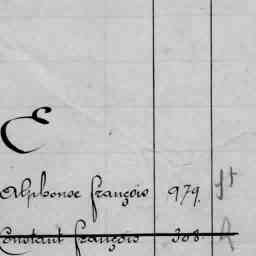 E
Alphonse françois 979. ft
Constant françois 308.